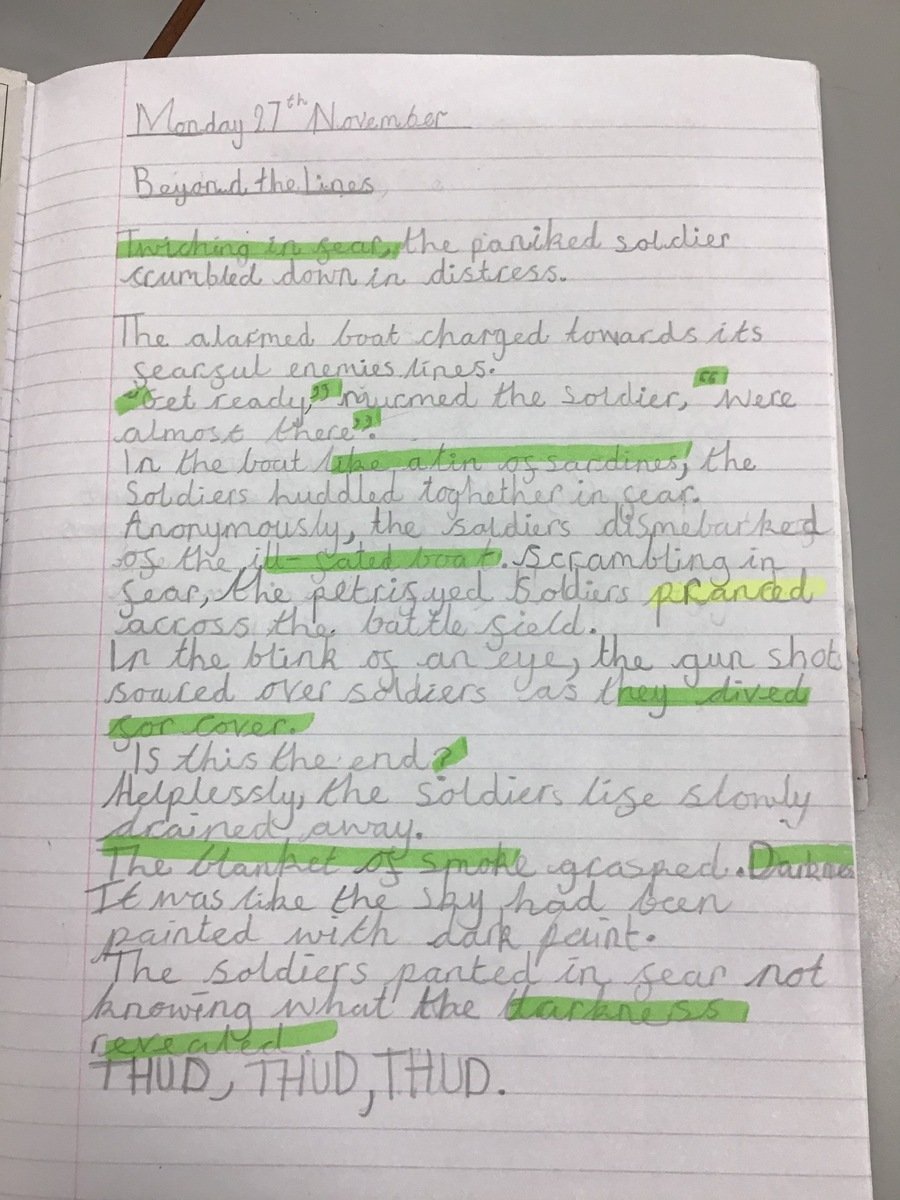 Monday 27th November
Beyond the lines
Twiching in fear, the paniked soldier
scumbled down in distress.
The alarmed boat charged towards its
fearful enemies lines.
"Get ready," murmed the soldier, "were
almost there".
In the boat like a tin of sardines, the
Soldiers huddled toghether in fear.
Anonymously, the soldiers dismebarked
of the ill-fated boat. Scrambling in
fear, the petrifyed soldiers pranced
accross the battle field.
In the blink of an eye, the gun shot
soared over soldiers as they dived
for cover.
Is this the end?
Helplessly, the soldiers life slowly
drained away.
The blanket of smoke grasped. Darkness
It was like the sky had been
painted with dark paint.
The soldiers panted in fear not
knowing what the darkness
revealed
THUD, THUD, THUD.